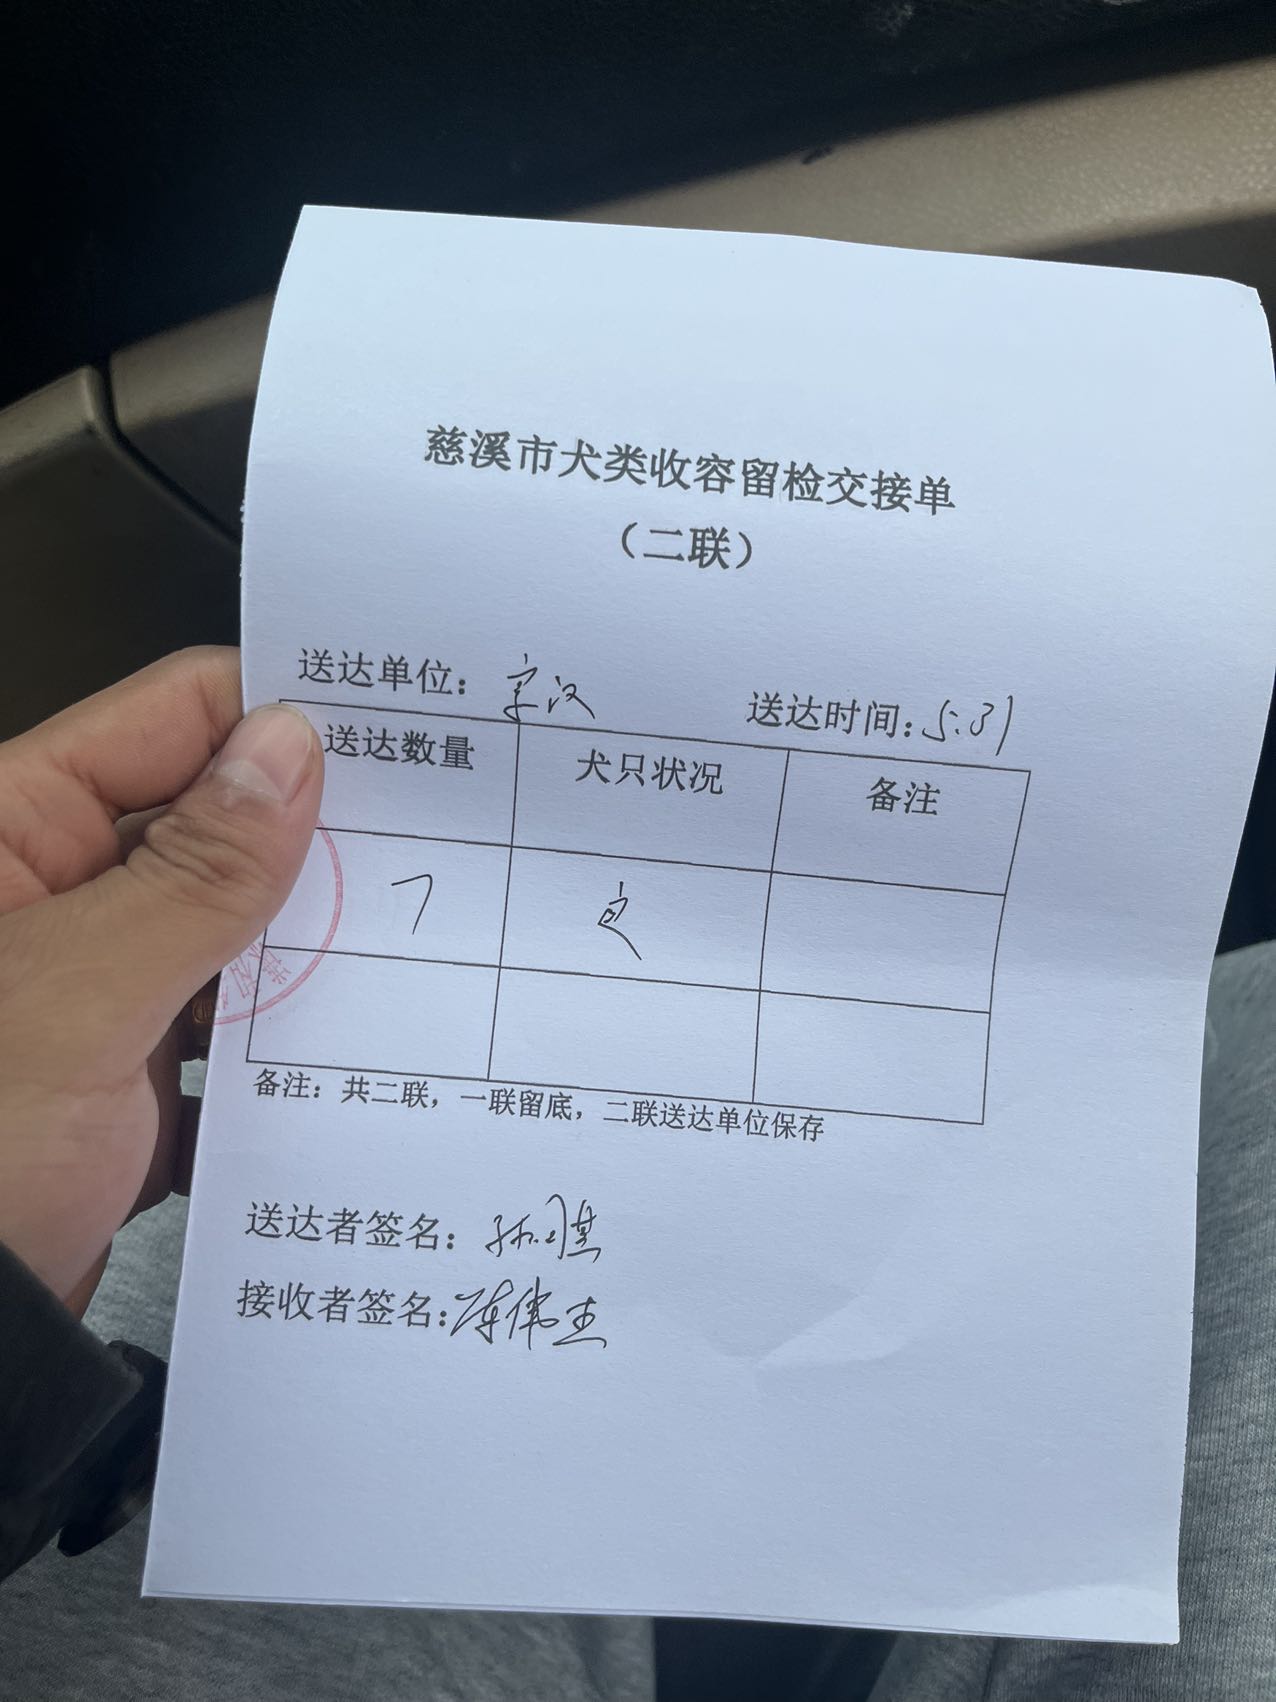 慈溪市犬类收容留检交接单
（二联）
送达单位：宗汉 送达时间：5.31
送达数量 犬只状况 备注
7 良
备注：共二联，一联留底，二联送达单位保存
送达者签名：孙
接收者签名：陈伟杰